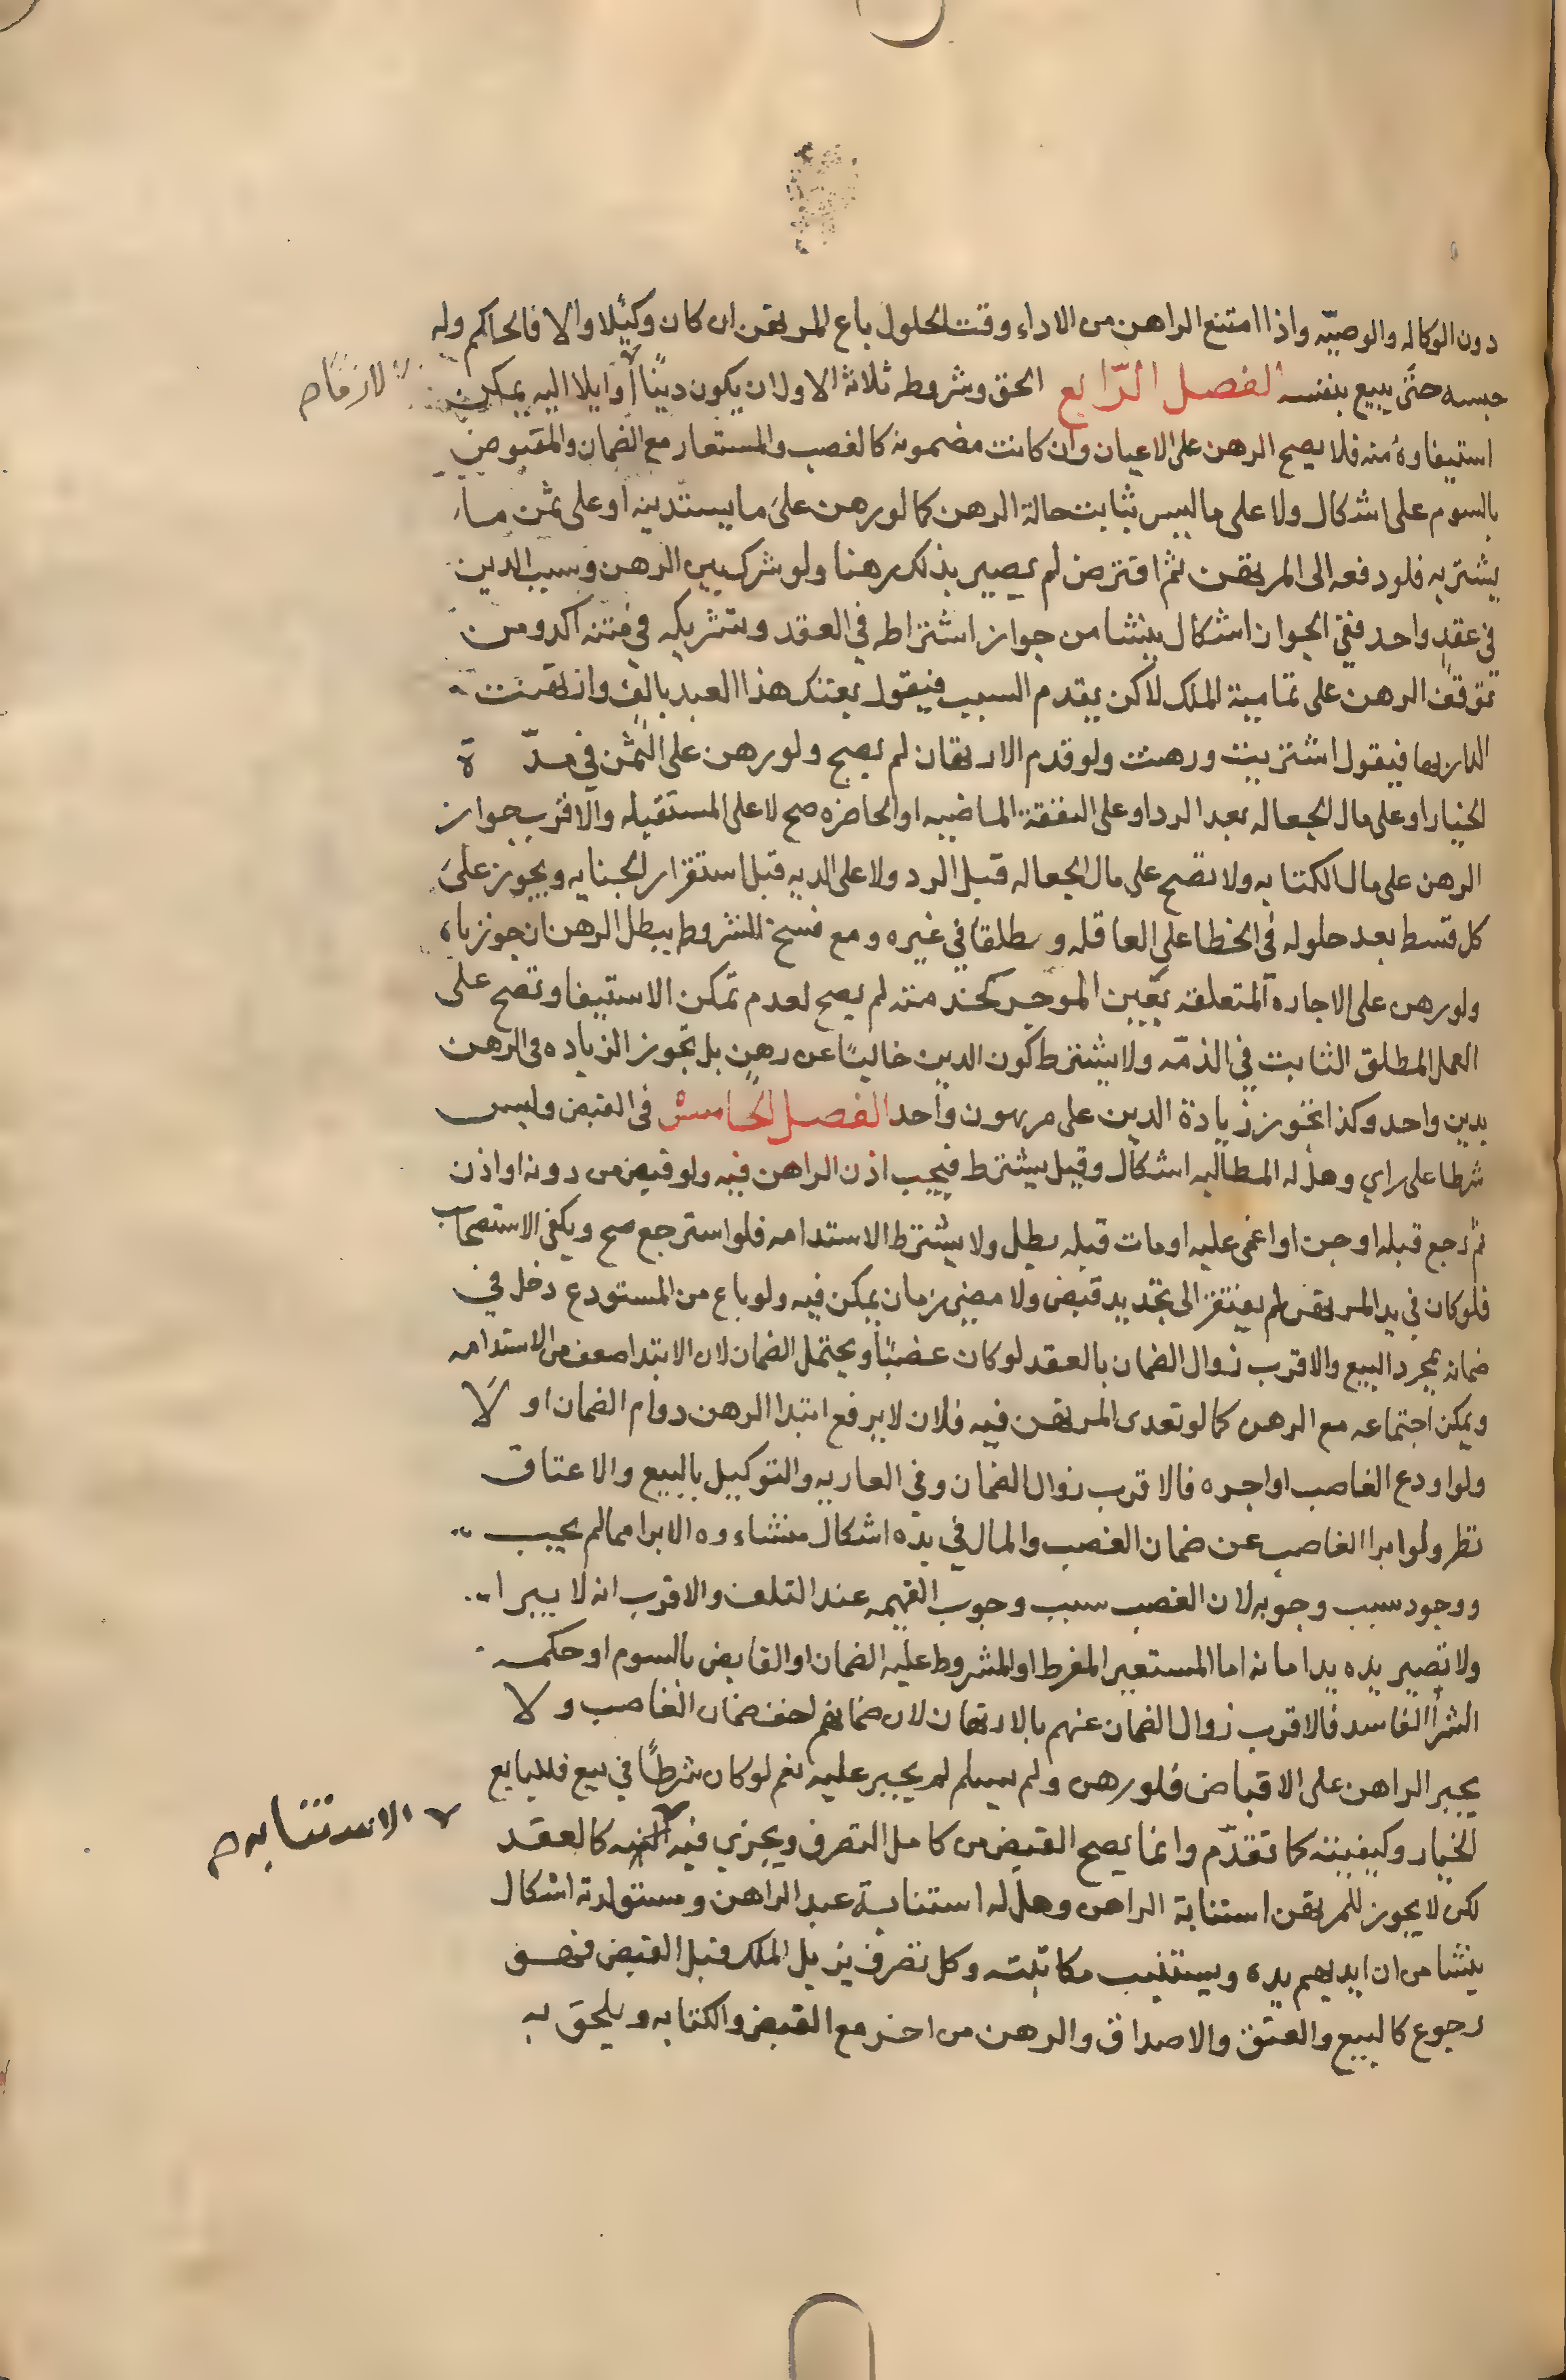 دون الوكاله والوصيّه واذا امتنع الراهن من الاداء وقت الحلول باع المرتهن ان كان وكيلا والا فالحاكم وله
حبسه حتى يبيع بنفسه الفصل الرّابع الحق وشروطه ثلاثة الاول ان يكون دينًا او ايلا اليه يمكن
لازمًا صح
استيفاوه منه فلا يصح الرهن على الاعيان وان كانت مضمونه كالغصب والمستعار مع الضمان والمقبوض
بالسوم على اشكال ولا على ما ليس بثابت حالة الرهن كما لو رهن على ما يستدينه او على ثمن ما
يشتريه فلو دفعه الى المرتهن ثم اقترض لم يصير بذلك رهنا ولو شرك بين الرهن وسبب الدين
في عقد واحد ففي الجواز اشكال ينشا من جواز اشتراطه في العقد وتشريكه في متنه اكد ومن
توقف الرهن على تمامية الملك لاكن يقدم السبب فيقول بعتك هذا العبد بالف وارتهنت
الدار بها فيقول اشتريت ورهنت ولو قدم الارتهان لم يصح ولو رهن على الثمن في مدّة
الخيار او على مال الجعاله بعد الرد او على النفقة الماضيه او الحاضره صح لا على المستقبله والاقرب جواز
الرهن على مال الكتابه ولا تصح على مال الجعاله قبل الرد ولا على الديه قبل استقرار الجنايه ويجوز على
كل قسط بعد حلوله في الخطا على العاقله ومطلقا في غيره ومع فسخ المشروطه يبطل الرهن ان جوزناه
ولو رهن على الاجاره المتعلقه بعين الموجر كخدمته لم يصح لعدم تمكن الاستيفا وتصح على
العمل المطلق الثابت في الذمّه ولا يشترط كون الدين خاليًا عن رهن بل تجوز الزياده في الرهن
بدين واحد وكذا تجوز زيادة الدين على مرهون واحد الفصل الخامس في القبض وليس
شرطا على راي وهل له المطالبه اشكال وقيل يشترط فيجب اذن الراهن فيه ولو قبض من دونه او اذن
ثم رجع قبله او جن او اغمى عليه او مات قبله بطل ولا يشترط الاستدامه فلو استرجع صح ويكفي الاستصحاب
فلو كان في يد المرتهن لم يفتقر الى تجديد قبض ولا مضي زمان يمكن فيه ولو باع من المستودع دخل في
ضمانه بمجرد البيع والاقرب زوال الضمان بالعقد لو كان غصبًا ويحتمل الضمان لان الابتدا اضعف من الاستدامه
ويمكن اجتماعه مع الرهن كما لو تعدى المرتهن فيه فلان لا يرفع ابتدا الرهن دوام الضمان اولا
ولو اودع الغاصب او اجره فالاقرب زوال الضمان وفي العاريه والتوكيل بالبيع والاعتاق
نظر ولو ابرا الغاصب عن ضمان الغصب والمال في يده اشكال منشاءوه الابرا مما لم يجب
ووجود سبب وجوبه لان الغصب سبب وجوب القيمه عند التلف والاقرب انه لا يبرا
ولا تصير يده يد امانه اما المستعير المفرط او المشروط عليه الضمان او القابض بالسوم او حكمه
الشرا الفاسد فالاقرب زوال الضمان عنهم بالارتهان لان ضمانهم اخف ضمان الغاصب ولا
يجبر الراهن على الاقباض فلو رهن ولم يسلم لم يجبر عليه نعم لو كان شرطًا في بيع فللبايع
الخيار وكيفيته كما تقدّم وانما يصح القبض من كامل التصرف ويجزي فيه كالعقد
الاستنابه صح
لكن لا يجوز للمرتهن استنابة الراهن وهل له استنابة عبد الراهن ومستولدته اشكال
ينشا من ان ايديهم يده ويستنيب مكاتبته وكل تصرف يزيل الملك قبل القبض فهو
رجوع كالبيع والعتق والاصداق والرهن من اخر مع القبض والكتابه ويلحق به